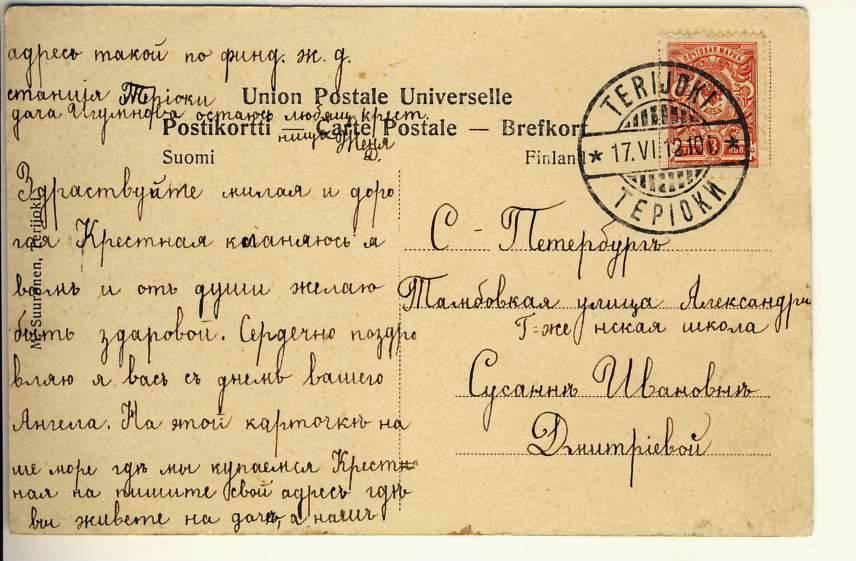 адресъ такой по финд. ж. д.
станція Теріоки
дача Игумнова остаюсь любящ. крест.
ница Женя
Д.
Union Postale Universelle
Postikortti — Carte Postale — Brefkort
Suomi Finland
ПОЧТОВАЯ МАРКА
TERIJOKI
* 17.VI.12.10 *
ТЕРІОКИ
M. Suuronen, Terijoki.
Здраствуйте милая и доро
гая Крестная кланяюсь я
вамъ и отъ души желаю
быть здаровой. Сердечно поздро
вляю я васъ съ днемъ вашего
Ангела. На этой карточкѣ на
ше море гдѣ мы купаемся Крест
ная на пишите свой адресъ гдѣ
вы живете на дачѣ, а нашъ
С-Петербургъ
Тамбовкая улица Александра
Г=же нская школа
Сусаннѣ Ивановнѣ
Дмитріевой